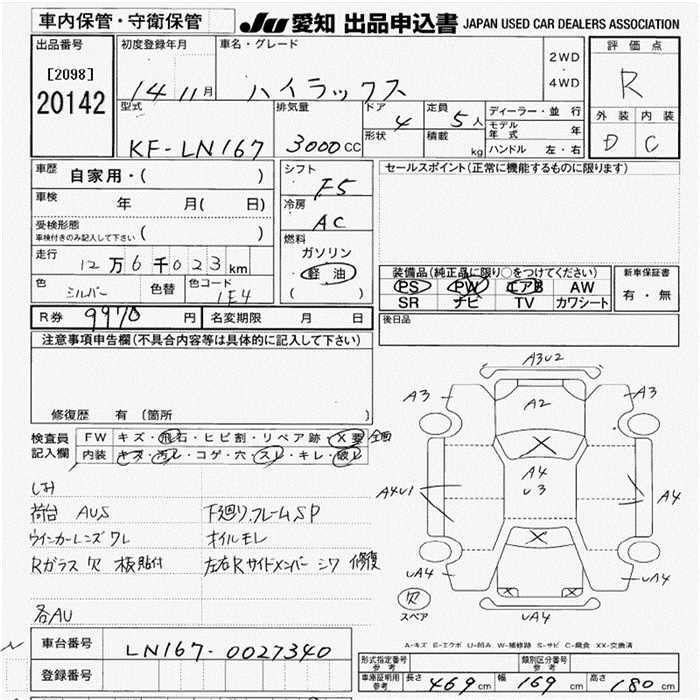 車内保管・守衛保管
JU 愛知 出品申込書 JAPAN USED CAR DEALERS ASSOCIATION
出品番号
[2098]
20142
初度登録年月
14 11月
車名・グレード
ハイラックス
2WD
・
4WD
評価点
R
型式
KF-LN167
排気量
3000CC
ドア
4
形状
定員
5人
積載
kg
ディーラー・並行
モデル年式 年
ハンドル 左・右
外装 内装
D C
車歴
自家用・( )
車検
年 月( 日)
受検形態
車検付きのみ記入して下さい ( )
走行
12万6千023km
色
シルバー
色替
色コード
1E4
シフト
F5
冷房
AC
燃料
ガソリン
軽油
( )
セールスポイント(正常に機能するものに限ります)
装備品(純正品に限り○をつけてください)
PS PW エアB AW
SR ナビ TV カワシート
新車保証書
有・無
R券 9970円 名変期限 月 日
後日品
注意事項申告欄(不具合内容等は具体的に記入して下さい)
修復歴 有 〔箇所 〕
検査員記入欄
FW キズ・飛石・ヒビ割・リペア跡・X要 全面
内装 キズ・汚レ・コゲ・穴・スレ・キレ・破レ
シミ
荷台 AUS 下廻り.フレームSP
ウインカーレンズワレ オイルモレ
Rガラス欠 板貼付 左右Rサイドメンバー シワ 修復
各AU
A3U2
A3 A2 A3
A4
U3
A4U1 A4
UA4 UA4
UA4
欠
スペア
車台番号 LN167-0027340
登録番号
A-キズ E-エクボ U-凹み W-補修跡 S-サビ C-腐食 XX-交換済
形式指定番号 参考
類別区分番号 参考
車庫証明用参考 長さ 469cm 幅 169cm 高さ 180cm